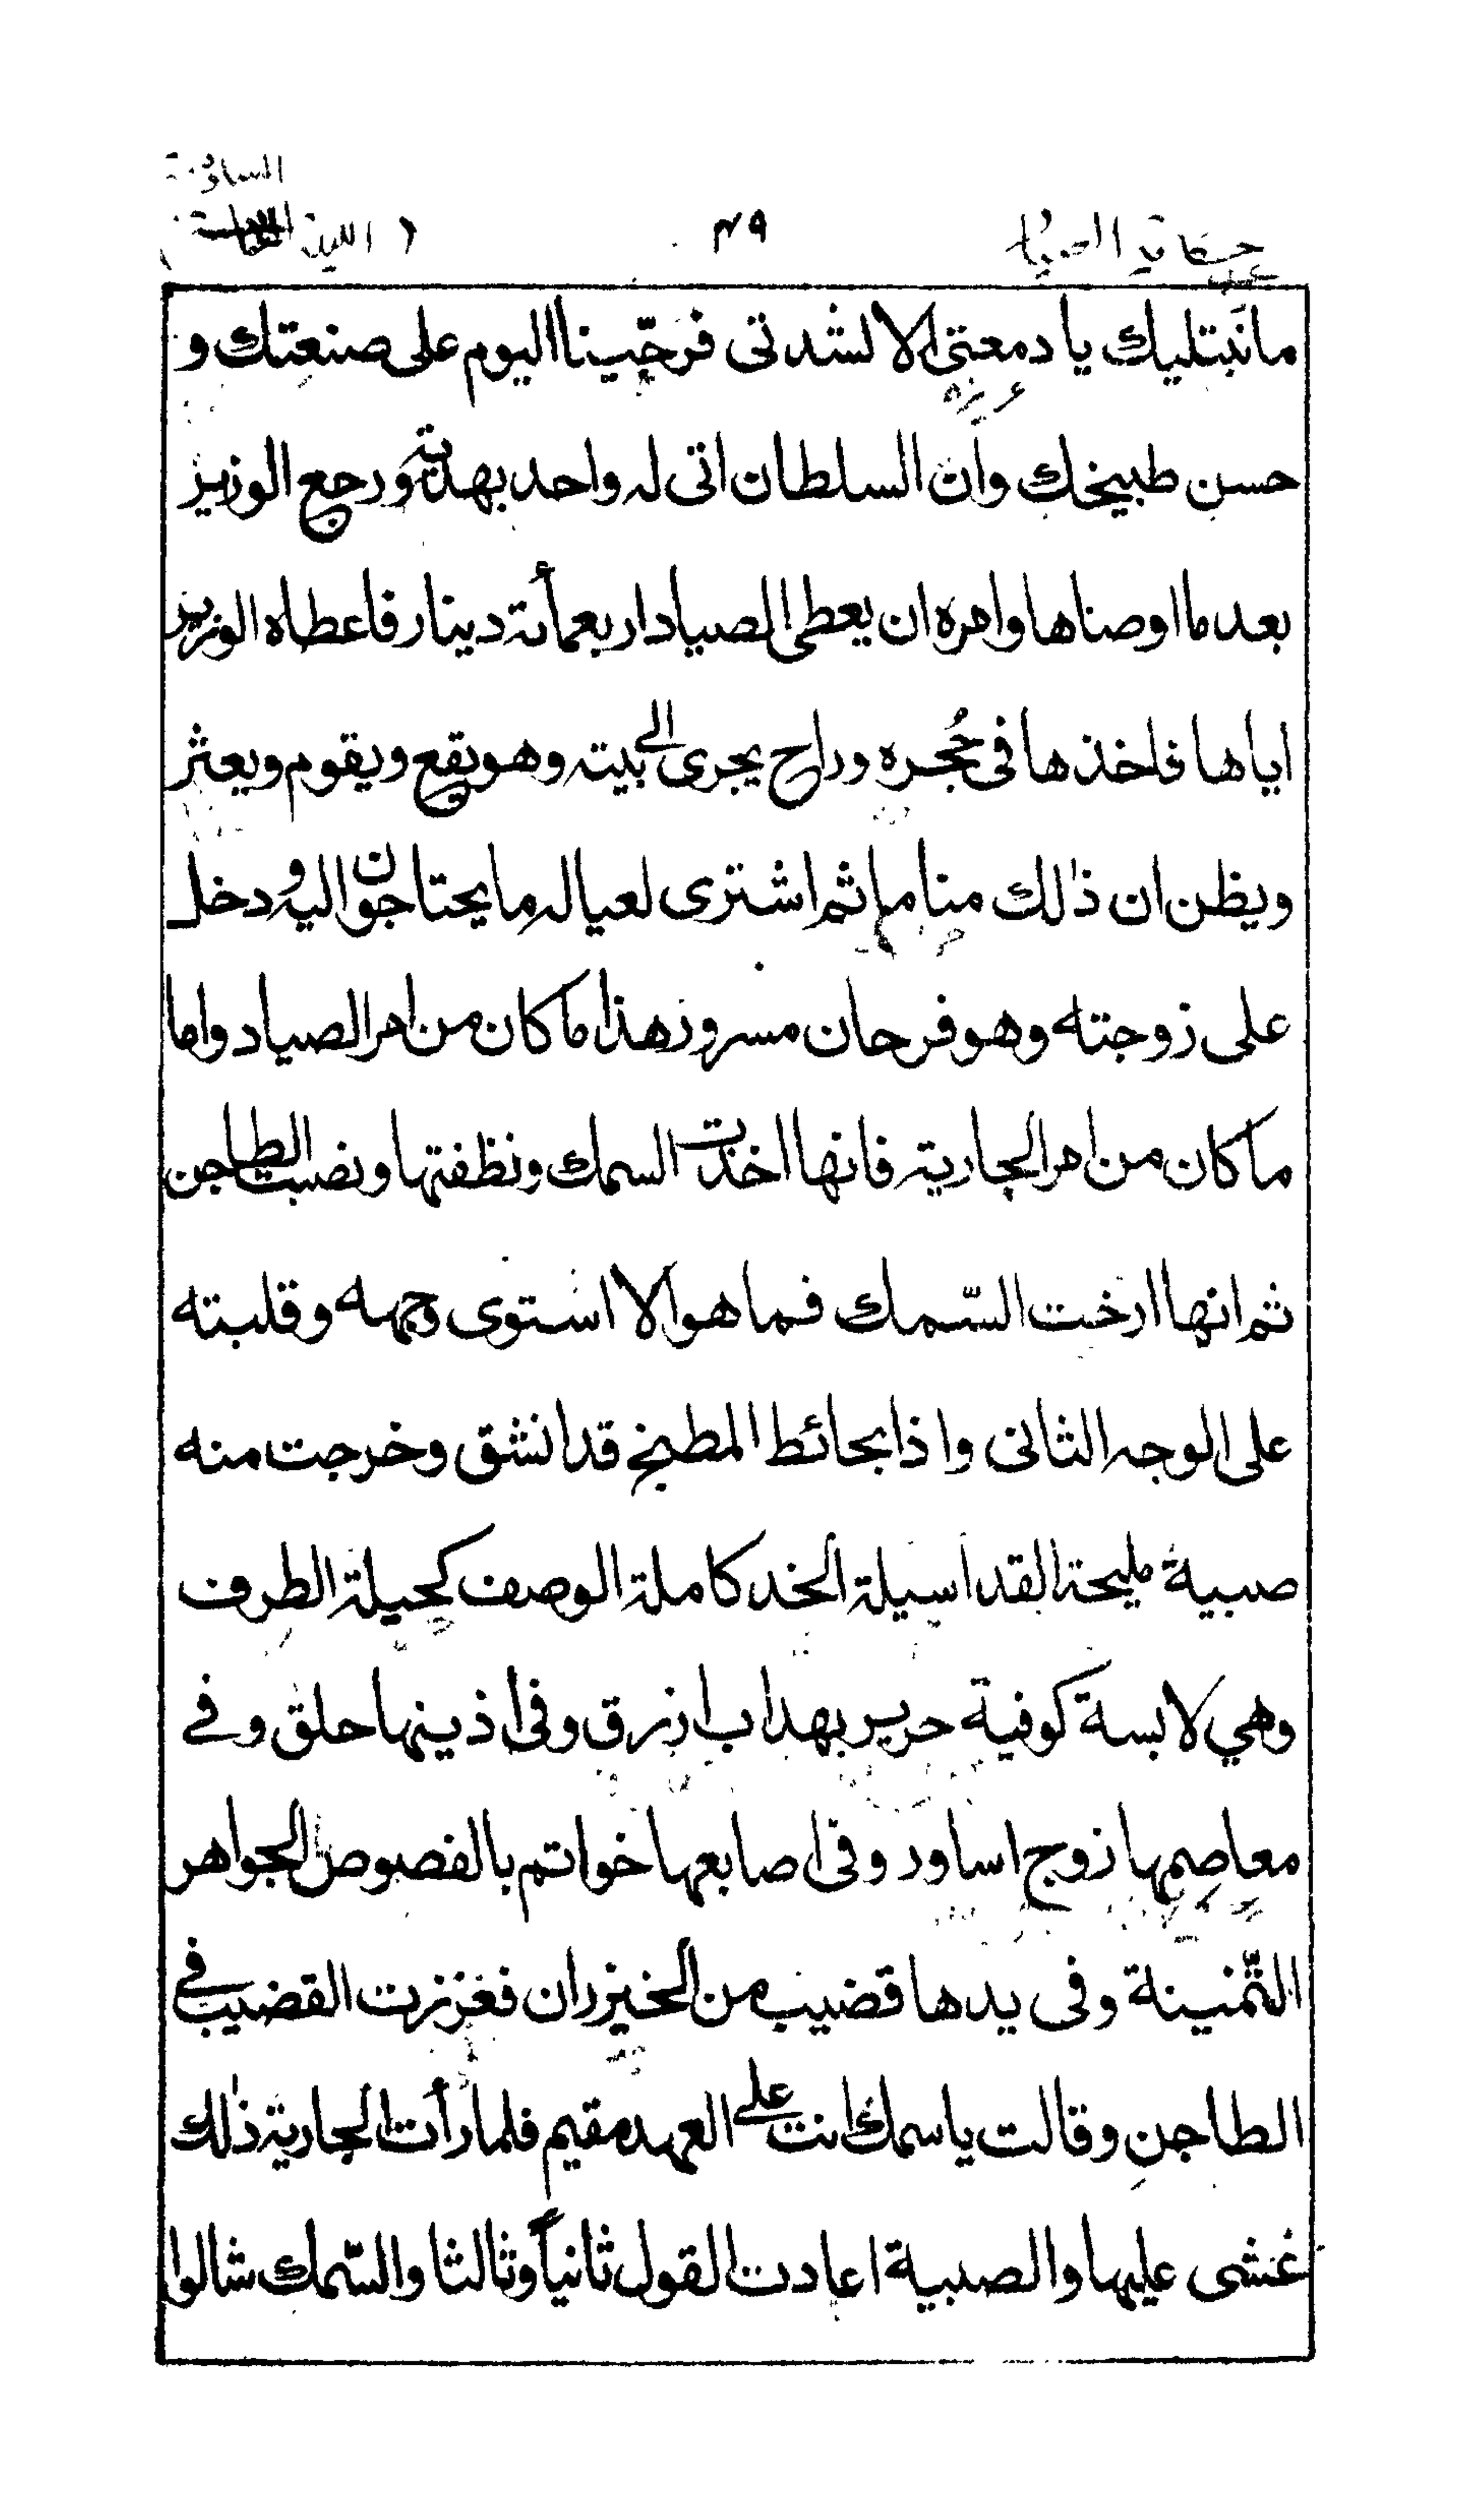 ٤٩
ما نبتليك يا دمعتي الا لشدتى فرجّينا اليوم على صنعتك و
حسن طبيخك وان السلطان اتى له واحد بهدية ورجع الوزير
بعد ما اوصناها وامره ان يعطى الصياد اربعمأته دينار فاعطاه الوزير
اياها فاخذها فى حُجره وراح يجرى الى بيته وهو يقع ويقوم ويعثر
ويظن ان ذالك مناما ثم اشترى لعياله ما يحتاجون اليه ودخل
على زوجته وهو فرحان مسرور هذا ما كان من امر الصياد واما
ما كان من امر الجارية فانها اخذت السمك ونظفتها ونصبت الطاجن
ثم انها ارخت السّمك فما هو الا استوى وجهه وقلبته
على الوجه الثانى واذا بحائط المطبخ قد انشق وخرجت منه
صبية مليحة القد اسيلة الخد كاملة الوصف كحيلة الطرف
وهي لابسة كوفية حرير بهداب ازرق وفى اذينها حلق وفے
معاصمها زوج اساور وفى اصابعها خواتم بالفصوص الجواهر
الثمّينة وفى يدها قضيب من الخيزران فغززت القضيب فے
الطاجن وقالت يا سمك انت على العهد مقيم فلما رأت الجارية ذالك
غشى عليها والصبية اعادت القول ثانياً وثالثا والسّمك شالوا